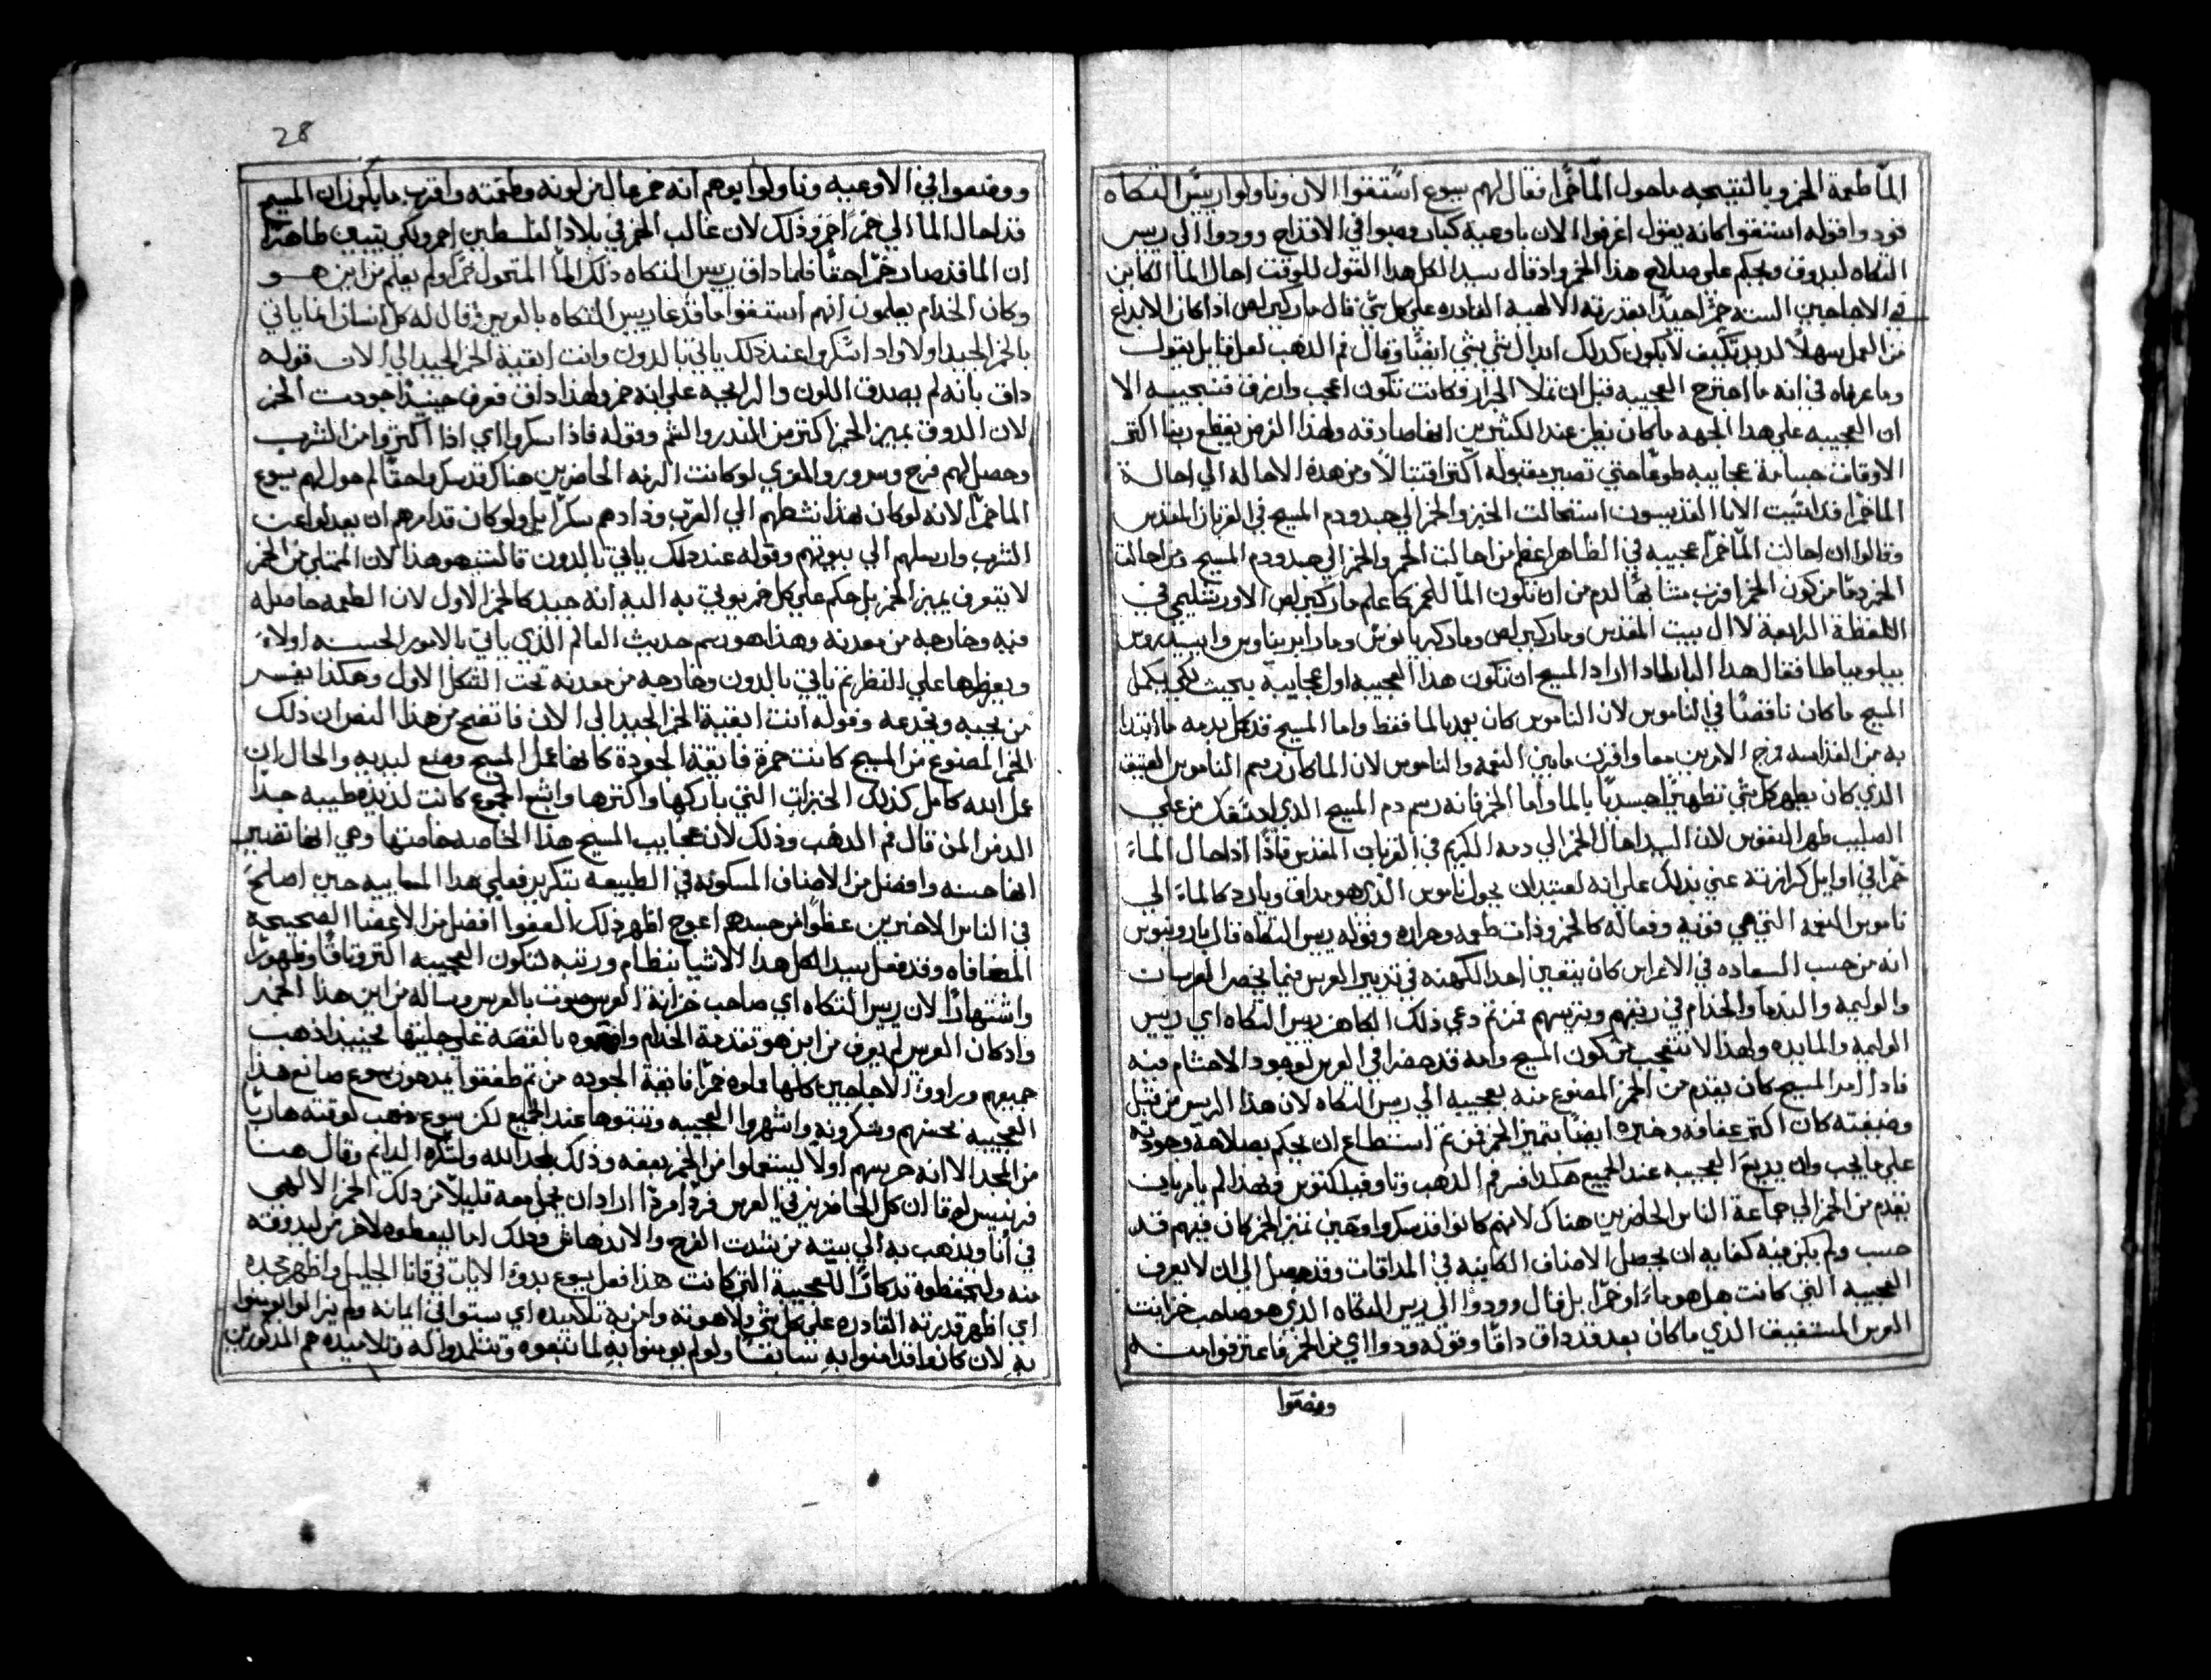 الما طعمة الخمر وبالنتيجه ما حول الما خمرا فقال لهم يسوع استقوا الان وناولوا ريس التكاه
فودوا قوله استقوا كانه يقول اغرفوا الان باوعية كبار وصبوا في الاقداح وودوا الي ريس
التكاه ليدوق ويحكم علي صلاح هذا الخمر واد قال سيد الكل هدا القول للوقت احال الما الكاين
في الاجاجين السته خمرا جيدا بقدرته الالهيه القادره علي كل شي قال مار كيرلص اذا كان الابداع
من العمل سهلا لديه فكيف لا يكون كدلك ابدال شي بشي ايضا وقال فم الدهب لعل قايل يقول
وما عرضاه في انه ما اخترع العجيبه قبل ان تملا الجرار فكانت تكون اعجب واشرف فنجيبه الا
ان العجيبه علي هدا الجهه ما كان يظن عند الكثيرين انها صادقه ولهذا الغرض يقطع ربنا اكتر
الاوقات جسامة عجايبه طوعا حتي تصير مقبوله اكتر اقتبالا ومن هذه الاحاله الي احالة
الما خمرا قد اتبت الابا القديسون استحالت الخبز والخمر الي جسد ودم المسيح في القربان المقدس
وقالوا ان احالت الما خمرا عجيبه في الظاهر اعظم من احالت الخبز والخمر الي جسد ودم المسيح ومن احالت
الخمر دما من كون الخمر اقرب مشابها للدم من ان تكون الما للخمر كما علم مار كيرلص الاورشليمي في
اللفظة الرابعة لاال بيت المقدس ومار كيرلص ومار كبريانوس ومار ايريناوس وايسيدورس
بيلوسياطا فقال هدا البابا لمادا اراد المسيح ان تكون هذا العجيبه اول عجايبه بحيث لكي يكمل
المسيح ما كان ناقصا في الناموس لان الناموس كان يعمد بالما فقط واما المسيح قد كمل بدمه ما ابتدا
به من القداسه مزج الامرين معا واقرن ما بين النعمه والناموس لان الما كان رسم الناموس العتيق
الذي كان يطهر كل شي تطهيرا جسديا بالما واما الخمر فانه رسم دم المسيح الدي اد سفك من علي
الصليب طهر النفوس لان السيد احال الخمر الي دمه الكريم في القربان المقدس فاذا اد احال الماء
خمرا في اوايل كرازته عني بذلك علي انه لعتيد ان يحول ناموس الذي هو مداق وبارد كالماء الي
ناموس النعمه التي هي قويه وفعاله كالخمر وذات طعمه وحراره وقوله ريس التكاه قال
انه من حسب السعاده في الاعراس كان يتعين احد الكهنه في تدبير العرس فيما يخص العرسات
والوليمه والندما والخدام في رتبتهم وترتيبهم فمن تم دعي ذلك الكاهن ريس التكاه اي ريس
الوليمه والمايده ولهذا لا نتعجب من كون المسيح وامه قد حضرا في العرس لوجود الاحتشام فيه
فادا امر المسيح كان يقدم من الخمر المصنوع منه بعجيبه الي ريس التكاه لان هذا الريس من قبل
وضيفته كان اكتر عفافه وخبره ايضا بتمييز الخمر فمن تم استطاع ان يحكم بصلاحه وجودته
علي ما يجب وان يذيع العجيبه عند الجميع هكدا فسر فم الدهب وتاوفيلكتوس ولهذا لم يامر بان
يقدم من الخمر الي جماعة الناس الحاضرين هناك لانهم كانوا قد سكروا وتمييز الخمر كان فيهم قد
حسب ولم يكن فيه كفايه ان يحصل الاصناف الكاينه في المداقات وقد حصل الي ان لا يعرف
العجيبه التي كانت هل هو ماء او خمرا بل قال وودوا الي ريس المتكاه الدي هو صاحب خزانت
العرس المستفيق الدي ما كان بعد قد داق داقا وقوله فودوا اي من الخمر فاغترفوا منه
ووضعوا
28
ووضعوا في الاوعيه وناولوا يوهم انه خمر عال من لونه وطعمته واقرب ما يكون ان المسيح
قد احال الما الي خمرا احمر وذلك لان غالب الخمر في بلاد الفلسطين احمر ولكي يتبين ظاهرا
ان الما قد صار خمرا حقا فلما داق ريس المتكاه ذلك الما المتحول خمرا ولم يعلم من اين هو
وكان الخدام يعلمون انهم استقوا ما فدعا ريس التكاه بالعريس وقال له كل انسان انما ياتي
بالخمر الجيد اولا واد اسكروا عند ذلك ياتي بالدون وانت ابقية الخمر الجيد الي الان قوله
داق بانه لم يصدق اللون والرايحه علي انه خمر ولهذا داق فعرف حينيذ اجودت الخمر
لان الدوق يميز الخمر اكتر من النضر والشم وقوله فاذا سكروا اي اذا اكتروا من الشرب
وحصل لهم فرح وسرور والمغزي لو كانت الزفه الحاضرين هناك قد سكروا حقا لم حول لهم يسوع
الما خمرا لانه لو كان هذا نشطهم الي الشرب وزادهم سكرا بل ولو كان قد امرهم ان يعدلوا عن
الشرب وارسلهم الي بيوتهم وقوله عند دلك ياتي بالدون فالسبب هو هذا لان الممتلي من الخمر
لا يعرف يميز الخمر بل حكم علي كل خمر يوتي به اليه انه جيد كالخمر الاول لان الطعمه حاصله
فيه وخارجه من معدته وهذا هو رسم حديث العالم الذي ياتي بالامور الحسنه اولا
ويعرضها علي النظر تم ياتي بالدون وخارجه من معدته تحت الشكل الاول وهكذا يفسر
من يحبه ويخدعه وقوله انت ابقية الخمر الجيد الي الان فاتضح من هذا النص ان ذلك
الخمر المصنوع من المسيح كانت خمرة فايقة الجودة كانها عمل المسيح وصنع ليديه والحال ان
عمل الله كامل كذلك الخبزات التي باركها واكترها واشبع الجموع كانت لذيذه طيبه جدا
الد من المن قال فم الدهب وذلك لان عجايب المسيح هذا الخاصه خاصتها وهي انها تصير
انها حسنه وافضل من الاصناف المسكونه في الطبيعة بتكرير فعلي هدا المتابيه حين اصلح
في الناس الاخرين عظوا من جسدهم اعوج اظهر ذلك العضوا افضل من الاعضا الصحيحه
المصافاه وقد فعل سيد الكل هدا الاشيا بنظام ورتبه لتكون العجيبه اكتر وتاقا وظهورا
واشتهارا لان ريس التكاه اي صاحب خزانة العرس صوت بالعريس وساله من اين هذا الخمر
واد كان العريس لم يعرف من اين هو تقدمة الخدام واخبروه بالقصه علي جليتها فحينيذ اذهب
جميعهم وراووا الاجاجين كلها مملوه خمرا فايقة الجوده من تم طفقوا يمدحون يسوع صانع هذا
العجيبه بحسنهم وشكرونه واشهروا العجيبه وتبتوها عند الجميع لكن يسوع ذهب لوقته هاربا
من المجد الا انه حرسهم اولا ليستعملوا من الخمر بعفه وذلك لمجد الله ولشكره الدايم وقال هنا
فرنسيس لوقا ان كل الحاضرين في العرس فردا فردا اراد ان يحمل معه قليلا من دلك الخمر الالهي
في انا ويذهب به الي بيته من شدت الفرح والاندهاش وذلك اما ليعطوه لاخرين ليدوقه
منه وليحفظوه تدكارا للعجيبة التي كانت هذا فعل يسوع بدو الايات في قانا الجليل واظهر مجده
اي اظهر قدرته القادره علي كل شي ولاهوته وامن به تلاميده اي ستوا في ايمانه ولم يزالوا يومنوا
به لان كانوا قد امنوا به سابقا ولو لم يومنوا به لما تبعوه وتتلمدوا له وتلاميده هم المدكورين